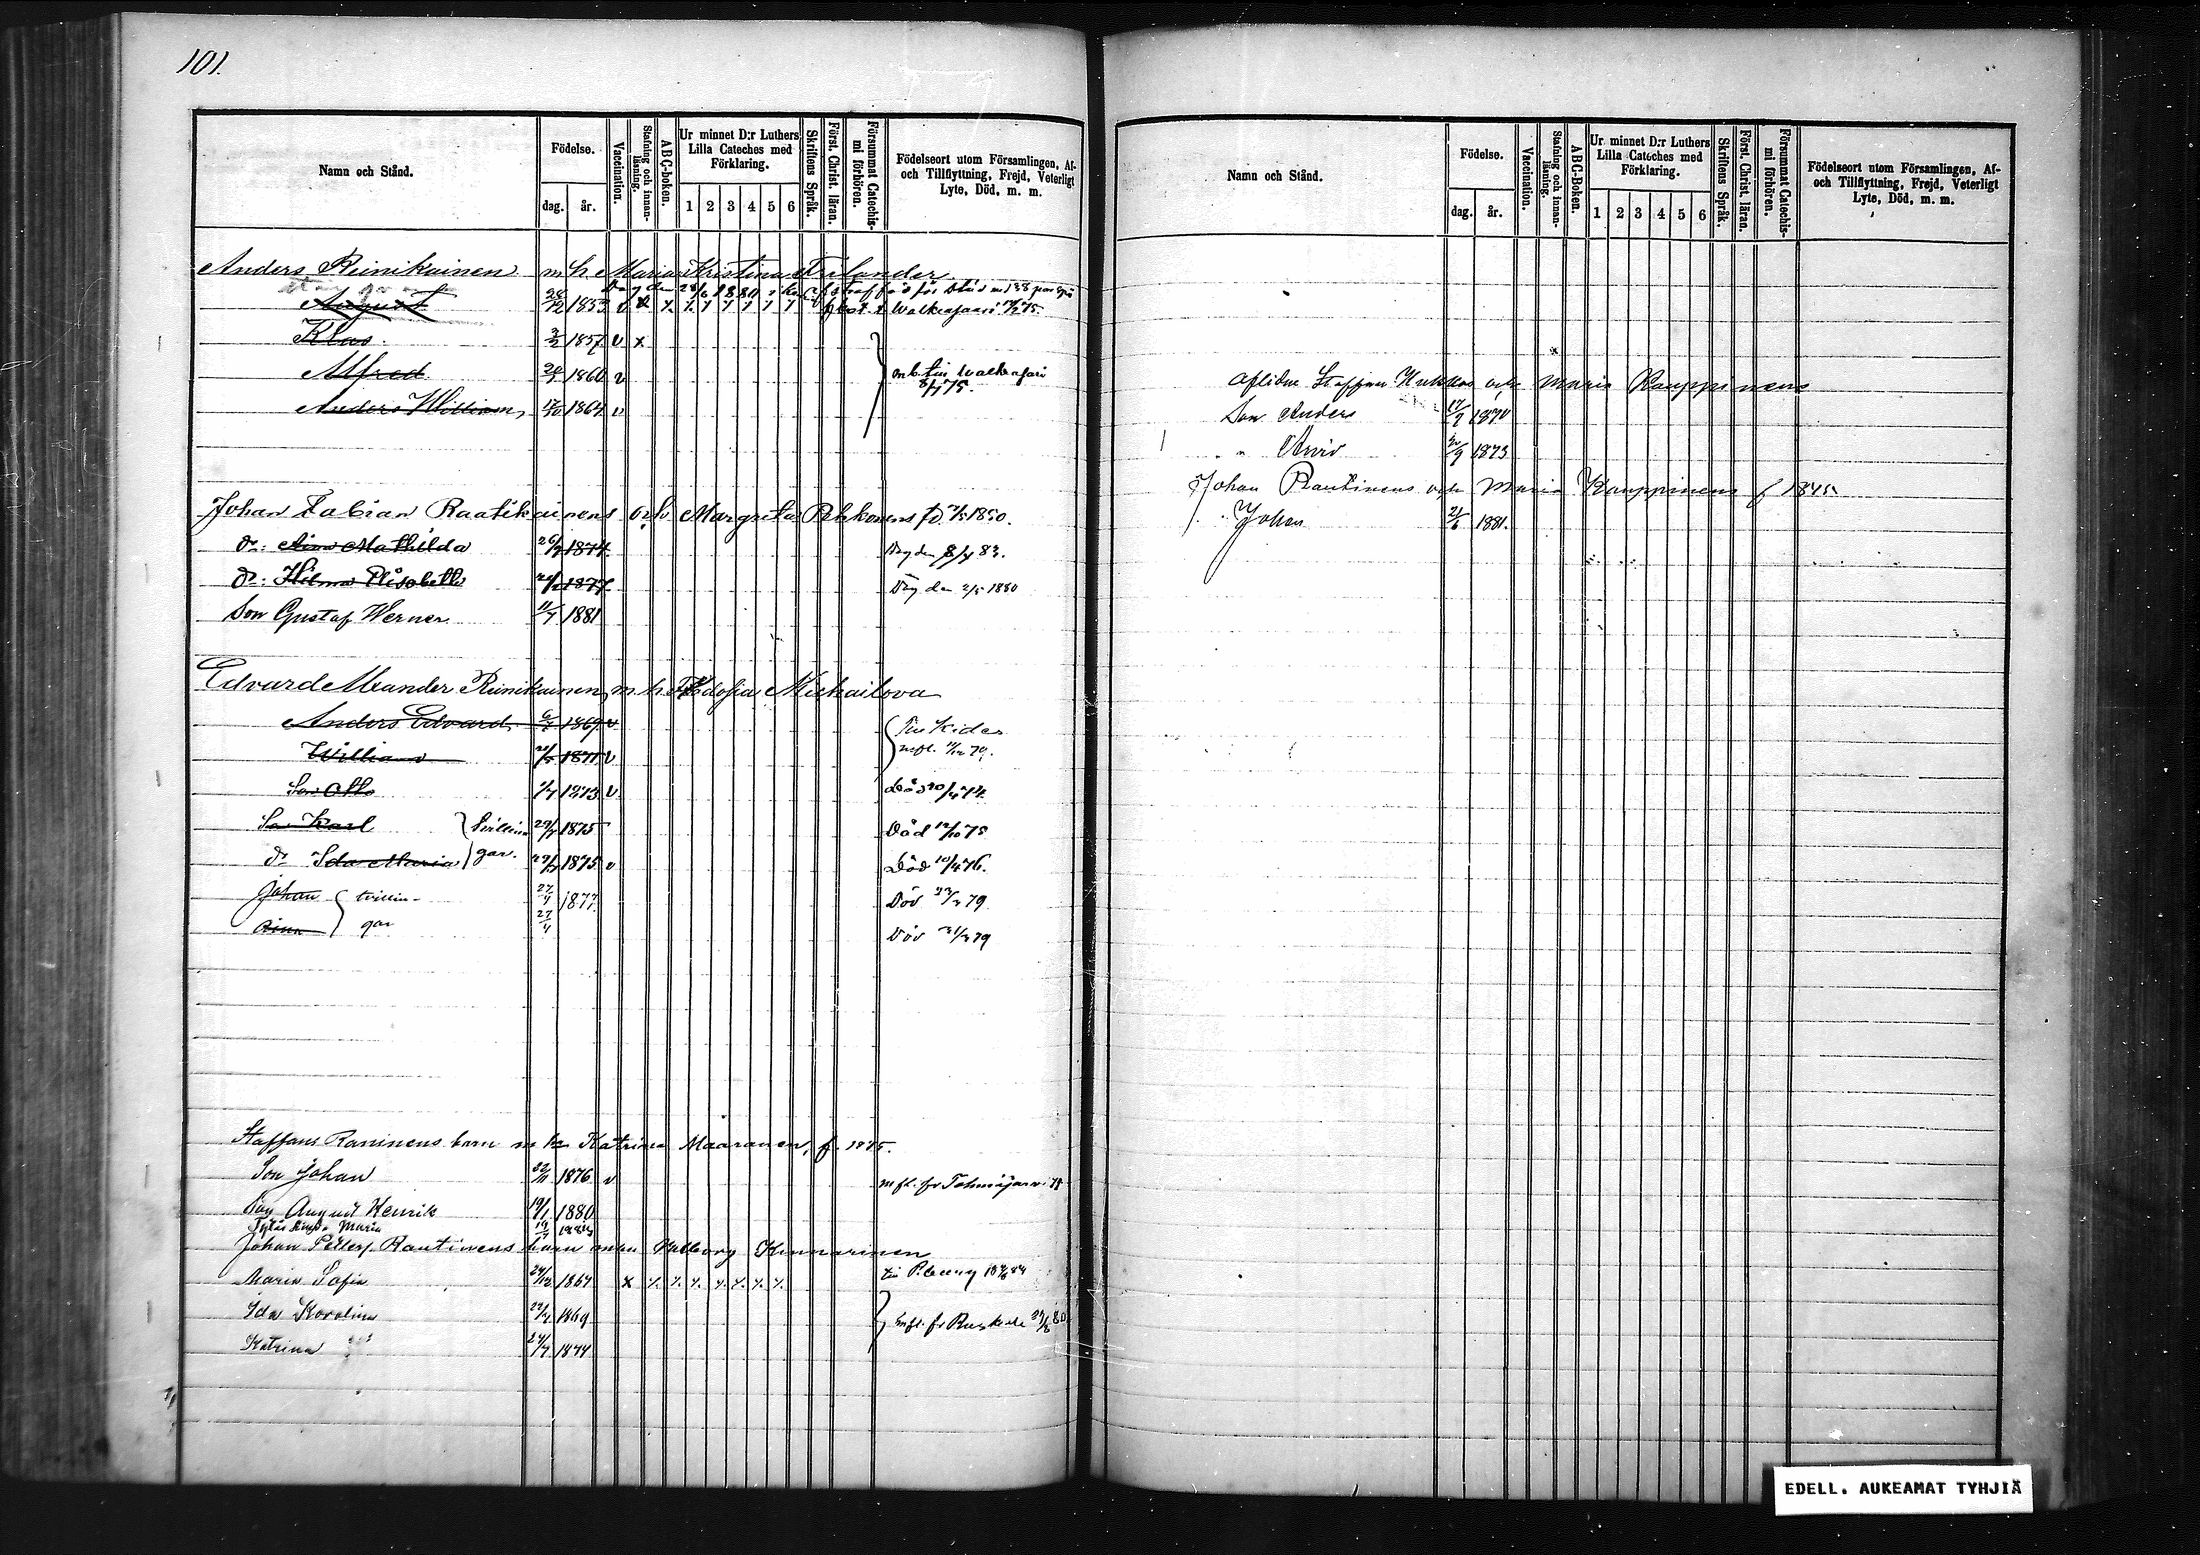 101.
Namn och Stånd.
Födelse.
dag. år.
Vaccination.
Stafning och innanläsning.
ABC-boken.
Ur minnet D:r Luthers Lilla Cateches med Förklaring.
1 2 3 4 5 6
Skriftens Språk.
Först. Christ. läran.
Försummat Catechismi förhören.
Födelseort utom Församlingen, Af- och Tillflyttning, Frejd, Veterligt Lyte, Död, m. m.
Anders Reinikainen m h Maria Kristina Frilander
August 28/12 1853 v x Walkeasaari 75.
Klas 3/2 1857 v x
Alfred 20/7 1860 v m b. till Walkeasari 8/7 75.
Anders William 17/10 1864 v
Johan Fabian Raatikainens och Margreta Pekkonens fö. 1850.
dr: Aina Mathilda 26/7 1874 Dog den 8/4 83.
dr: Hilma Elisabeth 1877 Dog den 2/5 1880
Son Gustaf Werner 11/7 1881
Edvard Meander Reinikainen m. h. Fedosia Michailova
Anders Edvard 6/7 1869 v Till Kides
William 1871 v
Son Otto 1/7 1873 v Död 74.
Son Karl 29/7 1875 Död 12/10 75
dr Ida Maria 29/7 1875 v Död 10/4 76.
Tvillingar.
Johan tvillin- 27/4 1877 Död 79
Aina gar 27/4 Död 79
Staffans Raninens barn m h Katrina Maaranen, f. 1845.
Son Johan 22/11 1876 v m fl. fr Tohmajärvi 78
Son August Henrik 19/1 1880
Maria
Johan Petters. Rautinens barn m Valborg Kinnarinen
Maria Sofia 24/12 1867 x
Ida Karolina 1869 Infl. fr Ruskeala 80
Katrina 24/7 1874
Namn och Stånd.
Födelse.
dag. år.
Vaccination.
Stafning och innanläsning.
ABC-Boken.
Ur minnet D:r Luthers Lilla Cateches med Förklaring.
1 2 3 4 5 6
Skriftens Språk.
Först. Christ. läran.
Försummat Catechismi förhören.
Födelseort utom Församlingen, Af- och Tillflyttning, Frejd, Veterligt Lyte, Död, m. m.
Aflidne Staffan Hukkas och Maria Kauppinens
Son Anders 17/7 1870
" Arvid 1873
Johan Rautinens och Maria Kauppinens f 1845
" Johan 21/6 1881.
EDELL. AUKEAMAT TYHJIÄ